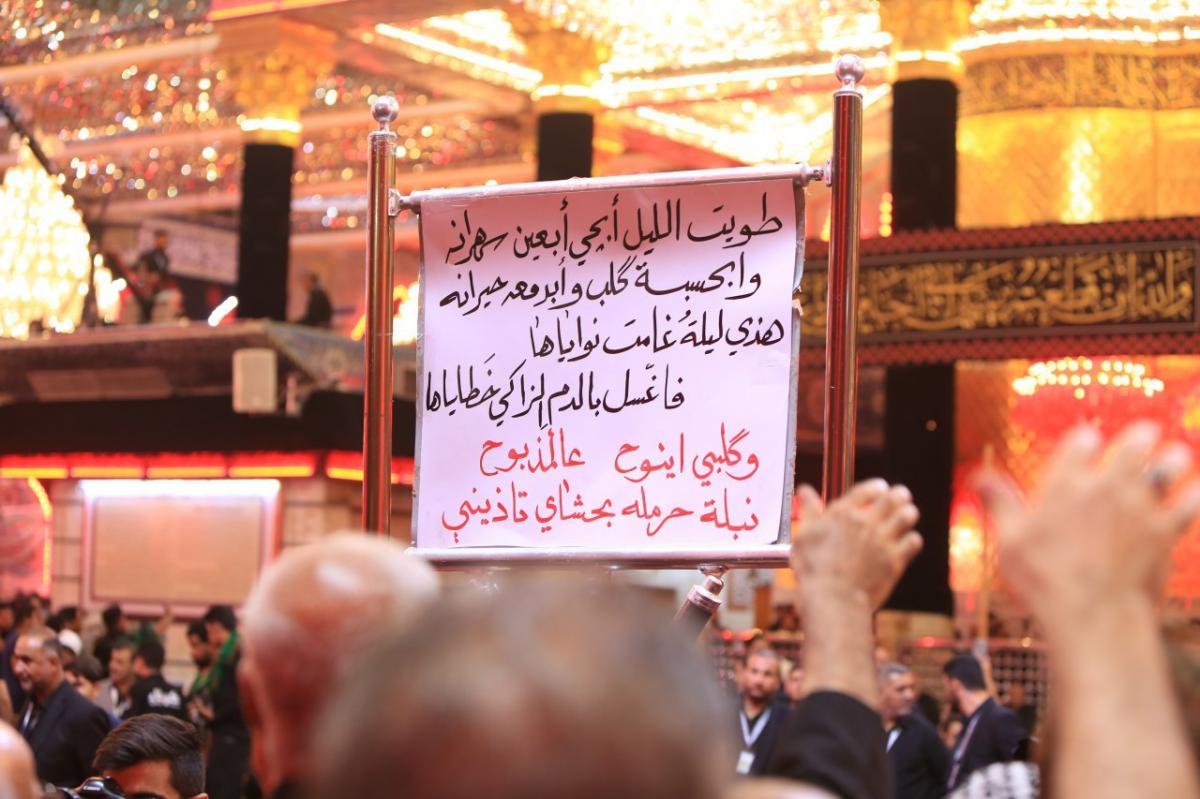 طويت الليل أبچي أبعين سهرانه
وابحسبة گلب وأبدمعه حيرانه
هذي ليلةُ غامت نواياها
فاغّسل بالدم الزاكي خَطاياها
وگلبي اينوح عالمذبوح
نبلة حرمله بحشاي تاذيني